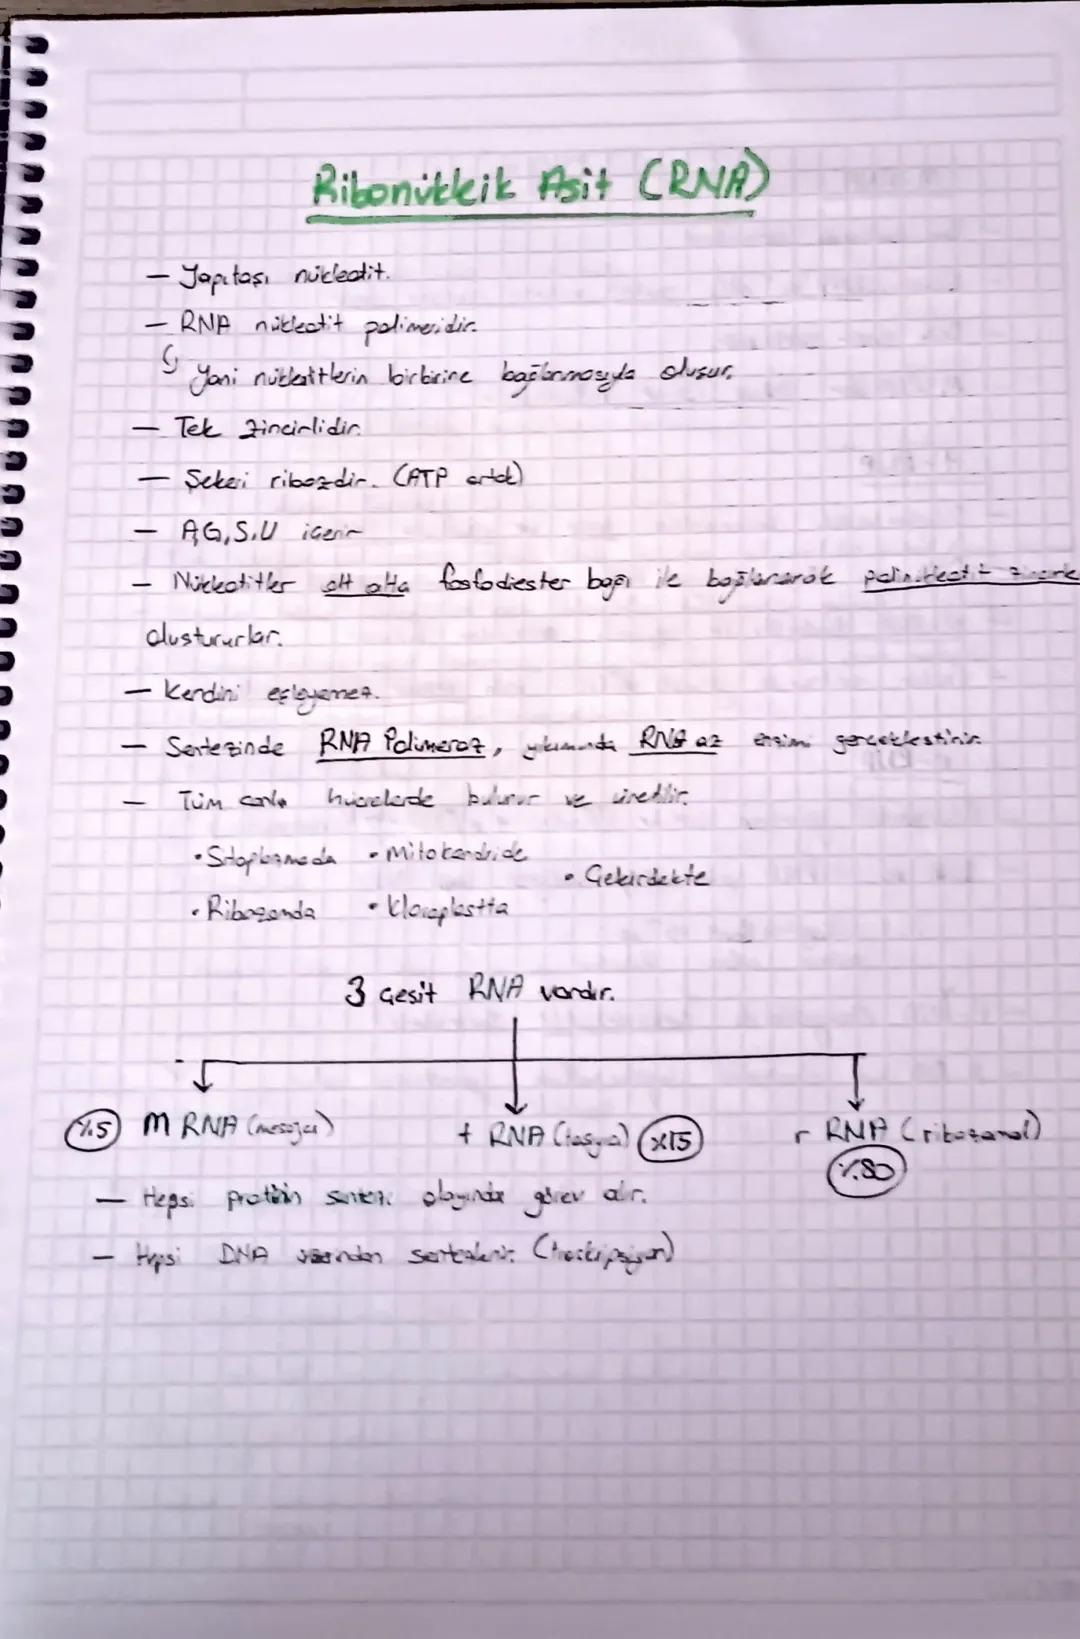 Ribonükleik Asit (RNA)
— Yapıtaşı nükleotit.
— RNA nükleotit polimeridir.
Yani nükleotitlerin birbirine bağlanmasıyla oluşur.
— Tek zincirlidir.
— Şekeri ribozdir. (ATP ortak)
— A,G,S,U içerir
— Nükleotitler alt alta fosfodiester bağı ile bağlanarak polinükleotit
oluştururlar.
— Kendini eşleyemez.
— Sentezinde RNA Polimeraz, yıkımında RNA az enzimi gerçekleştirir.
— Tüm canlı hücrelerde bulunur ve üretilir.
• Sitoplazmada • Mitokondride
• Çekirdekte
• Ribozomda • Kloroplastta
3 Çeşit RNA vardır.
%5 m RNA (mesajcı) t RNA (taşıyıcı) %15 r RNA (ribozomal)
%80
— Hepsi protein sentezi olayında görev alır.
— Hepsi DNA üzerinden sentezlenir. (transkripsiyon)